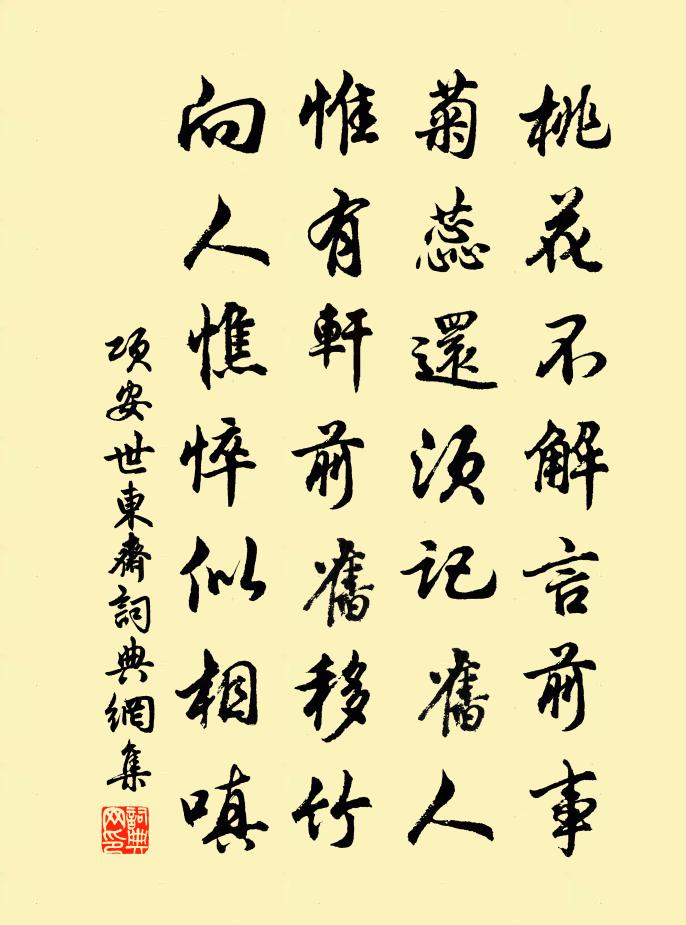 桃花不解言前事
菊蕊還須記舊人
惟有軒前舊移竹
向人憔悴似相嗔
項安世東齋詞典網集
詞典網印